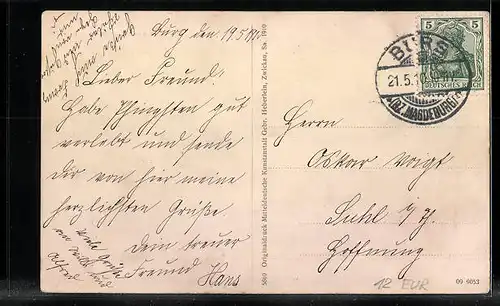 Burg den 19.5.1910
Lieber Freund!
Habe Pfingsten gut
verlebt und sende
Dir von hier meine
herzlichsten Grüße
Dein treuer
Freund Hans
viele Grüße
an und
Alfred
5869 Originaldruck Mitteldeutsche Kunstanstalt Gebr. Heberlein, Zwickau, Sa. 1909
5 5
DEUTSCHES REICH
BURG
21.5.10
(BZ. MAGDEBURG)
Herrn
Oskar Voigt
Suhl i/Th.
Hoffnung
12 EUR
09 6053